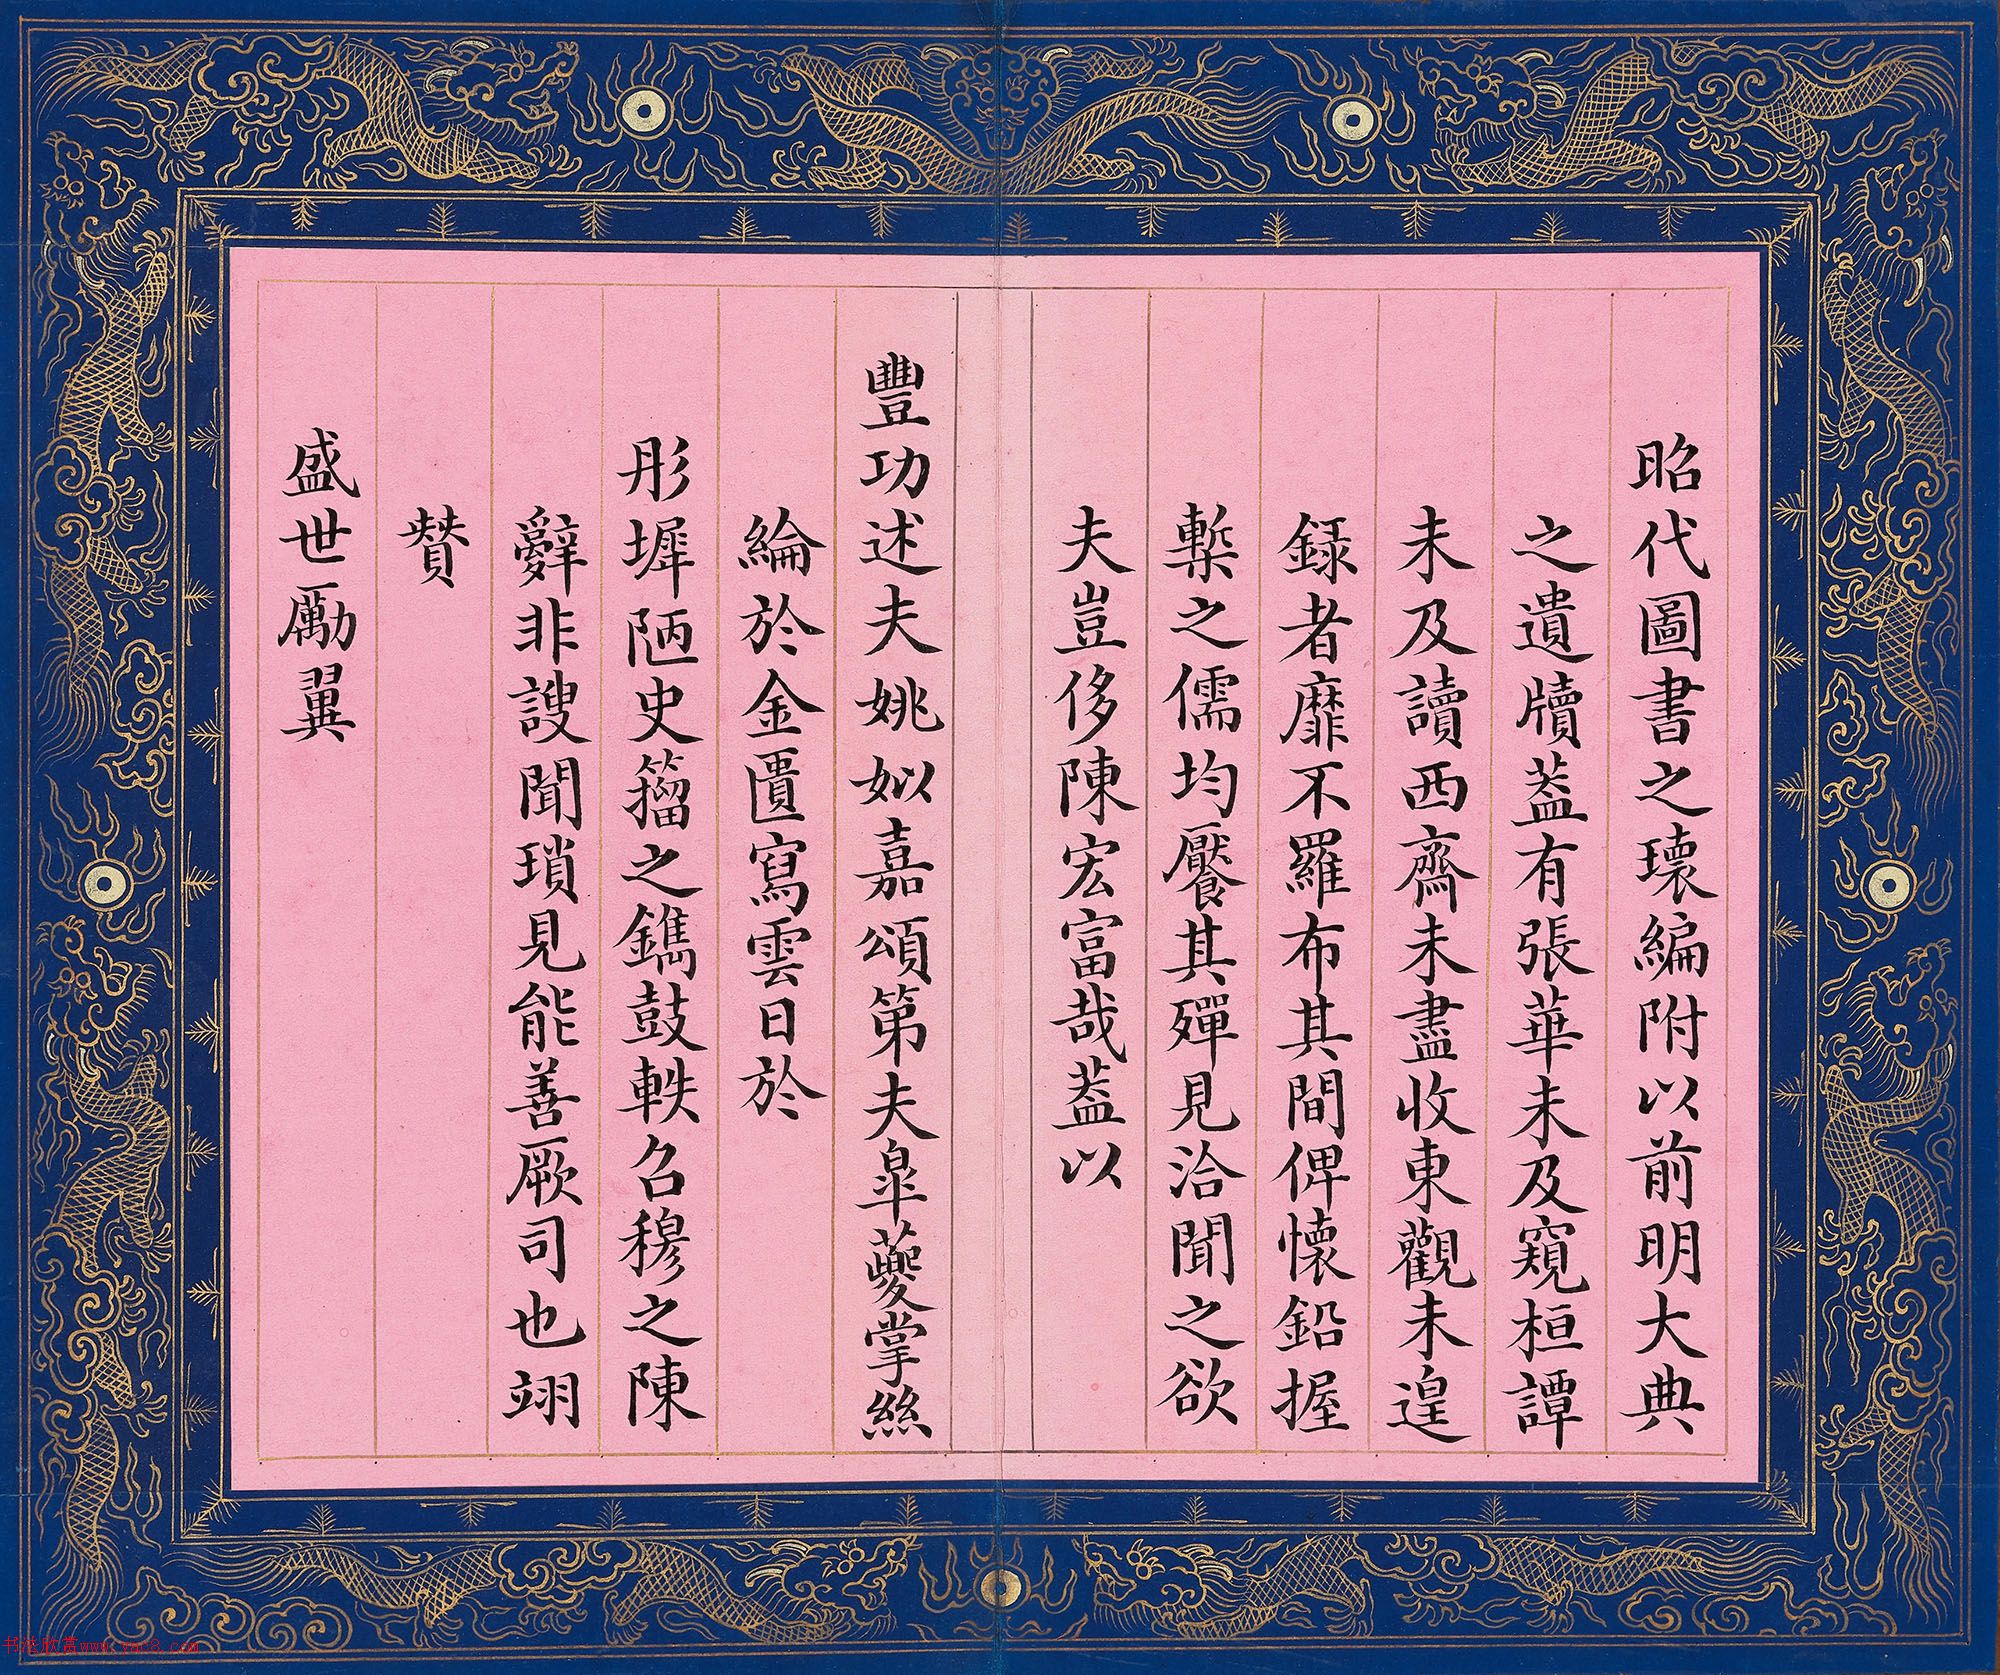 昭代圖書之瓌編附以前明大典
之遺牘葢有張華未及窺桓譚
未及讀西齋未盡收東觀未遑
録者靡不羅布其間俾懷鉛握
槧之儒均饜其殫見洽聞之欲
夫豈侈陳宏富哉葢以
豐功述夫姚姒嘉頌第夫臯夔掌絲
綸於金匱寫雲日於
彤墀陋史籀之鐫鼓軼召穆之陳
辭非謏聞瑣見能善厥司也翊
贊
盛世勵翼
书法欣赏www.yac8.com